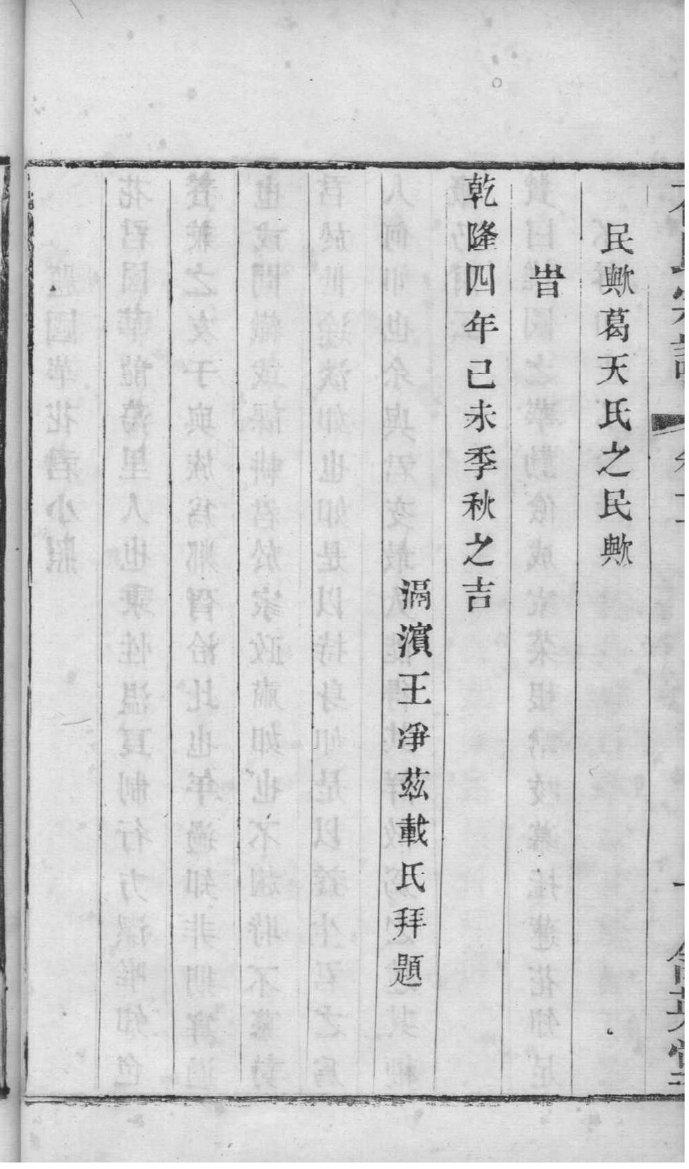 民歟葛天氏之民歟
旹
乾隆四年己未季秋之吉
滆濱王凈茲載氏拜題